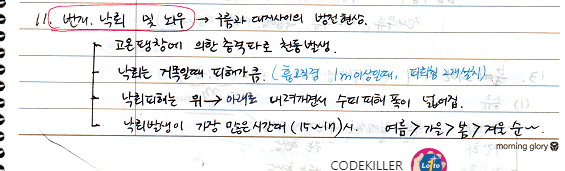 11. 번개, 낙뢰 및 뇌우 → 구름과 대지사이의 방전현상.
고온팽창에 의한 충격파로 천둥발생.
낙뢰는 거목일때 피해가 큼. (흉고직경 1m이상일때, 피뢰침 2개설치)
낙뢰피해는 위→아래로 내려가면서 수피피해 폭이 넓어짐.
낙뢰발생이 가장 많은시간대 (15~17)시. 여름>가을>봄>겨울 순~.
morning glory
CODEKILLER
Lotto